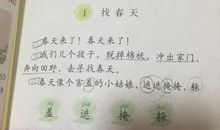 1 找春天
春天来了！春天来了！
我们几个孩子，脱掉棉袄，冲出家门，
奔向田野，去寻找春天。
春天像个害羞的小姑娘，遮遮掩掩，躲
羞 遮 掩 躲